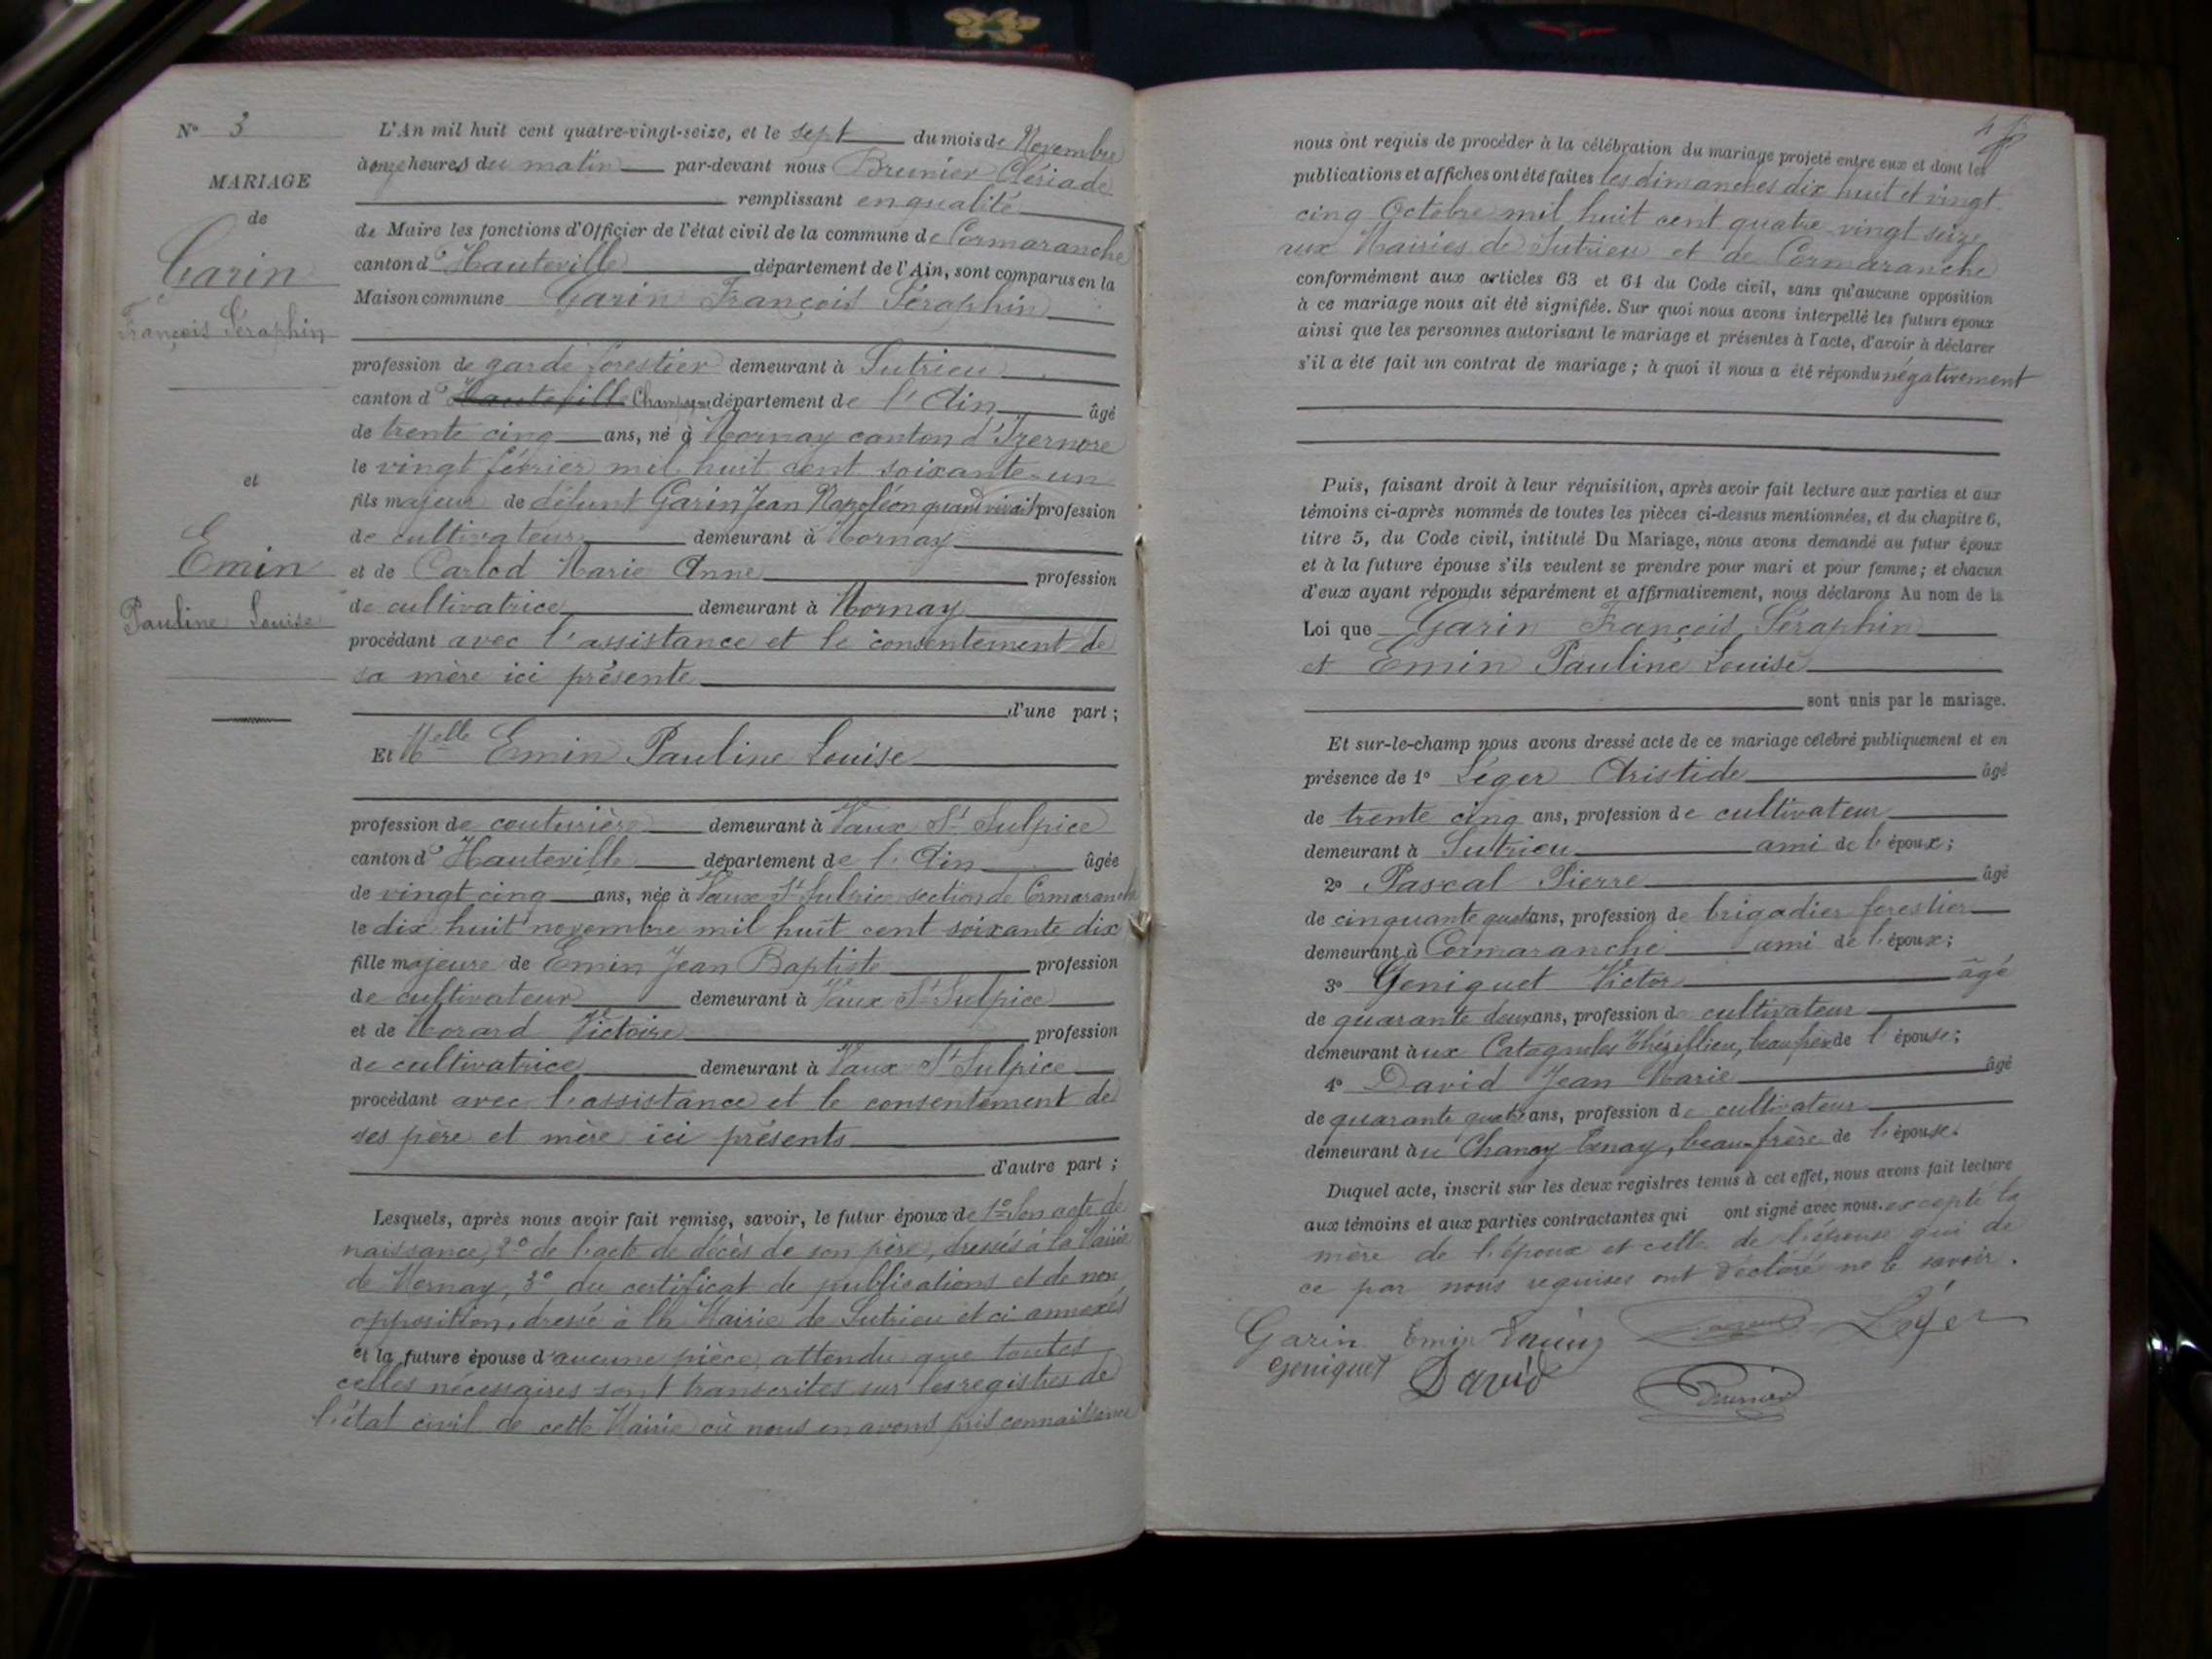 N° 3
MARIAGE
de
Garin
François Séraphin
et
Emin
Pauline Louise
L'An mil huit cent quatre-vingt-seize, et le sept du mois de Novembre
à onze heures du matin par-devant nous Brunier Clériade
remplissant en qualité
de Maire les fonctions d'Officier de l'état civil de la commune de Cormaranche
canton d'Hauteville département de l'Ain, sont comparus en la
Maison commune Garin François Séraphin
profession de garde forestier demeurant à Sutrieu
canton d' Hauteville Champagne département de l'Ain âgé
de trente cinq ans, né à Mornay canton d'Izernore
le vingt février mil huit cent soixante-un
fils majeur de défunt Garin Jean Napoléon quand vivait profession
de cultivateur demeurant à Mornay
et de Carlod Marie Anne profession
de cultivatrice demeurant à Mornay
procédant avec l'assistance et le consentement de
sa mère ici présente
d'une part ;
Et Melle Emin Pauline Louise
profession de couturière demeurant à Vaux St Sulpice
canton d'Hauteville département de l'Ain âgée
de vingt cinq ans, née à Vaux St Sulpice section de Cormaranche
le dix huit novembre mil huit cent soixante dix
fille majeure de Emin Jean Baptiste profession
de cultivateur demeurant à Vaux St Sulpice
et de Morard Victoire profession
de cultivatrice demeurant à Vaux St Sulpice
procédant avec l'assistance et le consentement de
ses père et mère ici présents
d'autre part ;
Lesquels, après nous avoir fait remise, savoir, le futur époux de 1° Son acte de
naissance, 2° de l'acte de décès de son père, dressés à la Mairie
de Mornay, 3° du certificat de publications et de non
opposition, dressé à la Mairie de Sutrieu et ci annexés
et la future épouse d'aucune pièce, attendu que toutes
celles nécessaires sont transcrites sur les registres de
l'état civil de cette Mairie où nous en avons pris connaissance
nous ont requis de procéder à la célébration du mariage projeté entre eux et dont les
publications et affiches ont été faites les dimanches dix huit et vingt
cinq Octobre mil huit cent quatre-vingt seize
aux Mairies de Sutrieu et de Cormaranche
conformément aux articles 63 et 64 du Code civil, sans qu'aucune opposition
à ce mariage nous ait été signifiée. Sur quoi nous avons interpellé les futurs époux
ainsi que les personnes autorisant le mariage et présentes à l'acte, d'avoir à déclarer
s'il a été fait un contrat de mariage ; à quoi il nous a été répondu négativement
Puis, faisant droit à leur réquisition, après avoir fait lecture aux parties et aux
témoins ci-après nommés de toutes les pièces ci-dessus mentionnées, et du chapitre 6,
titre 5, du Code civil, intitulé Du Mariage, nous avons demandé au futur époux
et à la future épouse s'ils veulent se prendre pour mari et pour femme ; et chacun
d'eux ayant répondu séparément et affirmativement, nous déclarons Au nom de la
Loi que Garin François Séraphin
et Emin Pauline Louise
sont unis par le mariage.
Et sur-le-champ nous avons dressé acte de ce mariage célébré publiquement et en
présence de 1° Léger Aristide âgé
de trente cinq ans, profession de cultivateur
demeurant à Sutrieu ami de l'époux ;
2° Pascal Pierre âgé
de cinquante quatre ans, profession de brigadier forestier
demeurant à Cormaranche ami de l'époux ;
3° Geniquet Victor âgé
de quarante deux ans, profession de cultivateur
demeurant aux Catagnoles Thézillieu, beau frère de l'épouse ;
4° David Jean Marie âgé
de quarante quatre ans, profession de cultivateur
demeurant au Chanay Tenay, beau-frère de l'épouse.
Duquel acte, inscrit sur les deux registres tenus à cet effet, nous avons fait lecture
aux témoins et aux parties contractantes qui ont signé avec nous, excepté la
mère de l'époux et celle de l'épouse qui de
ce par nous requises ont déclaré ne le savoir.
Garin Emin Léger
Geniquet David Brunier